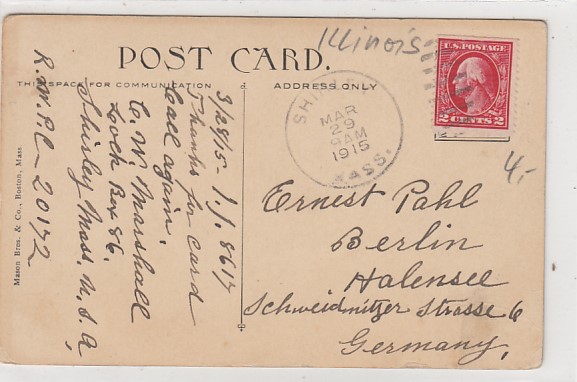 Illinois
POST CARD.
THIS SPACE FOR COMMUNICATION
ADDRESS ONLY
U.S. POSTAGE
2 CENTS 2
MAR
29
AM
1915
MASS.
4-
3/28/15- I.J. 8617
Thanks for card
Call again.
C. W. Marshall
Lock Box 86.
Shirley Mass, U.S.A,
PC- 20172
Mason Bros. & Co., Boston, Mass.
Ernest Pahl
Berlin
Halensee
Schweidnitzer Strasse 6
Germany,